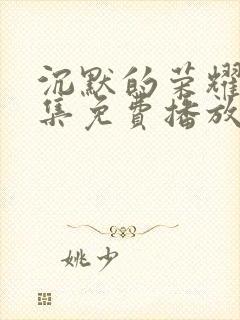 沉默的荣耀
集免费播放
姚少